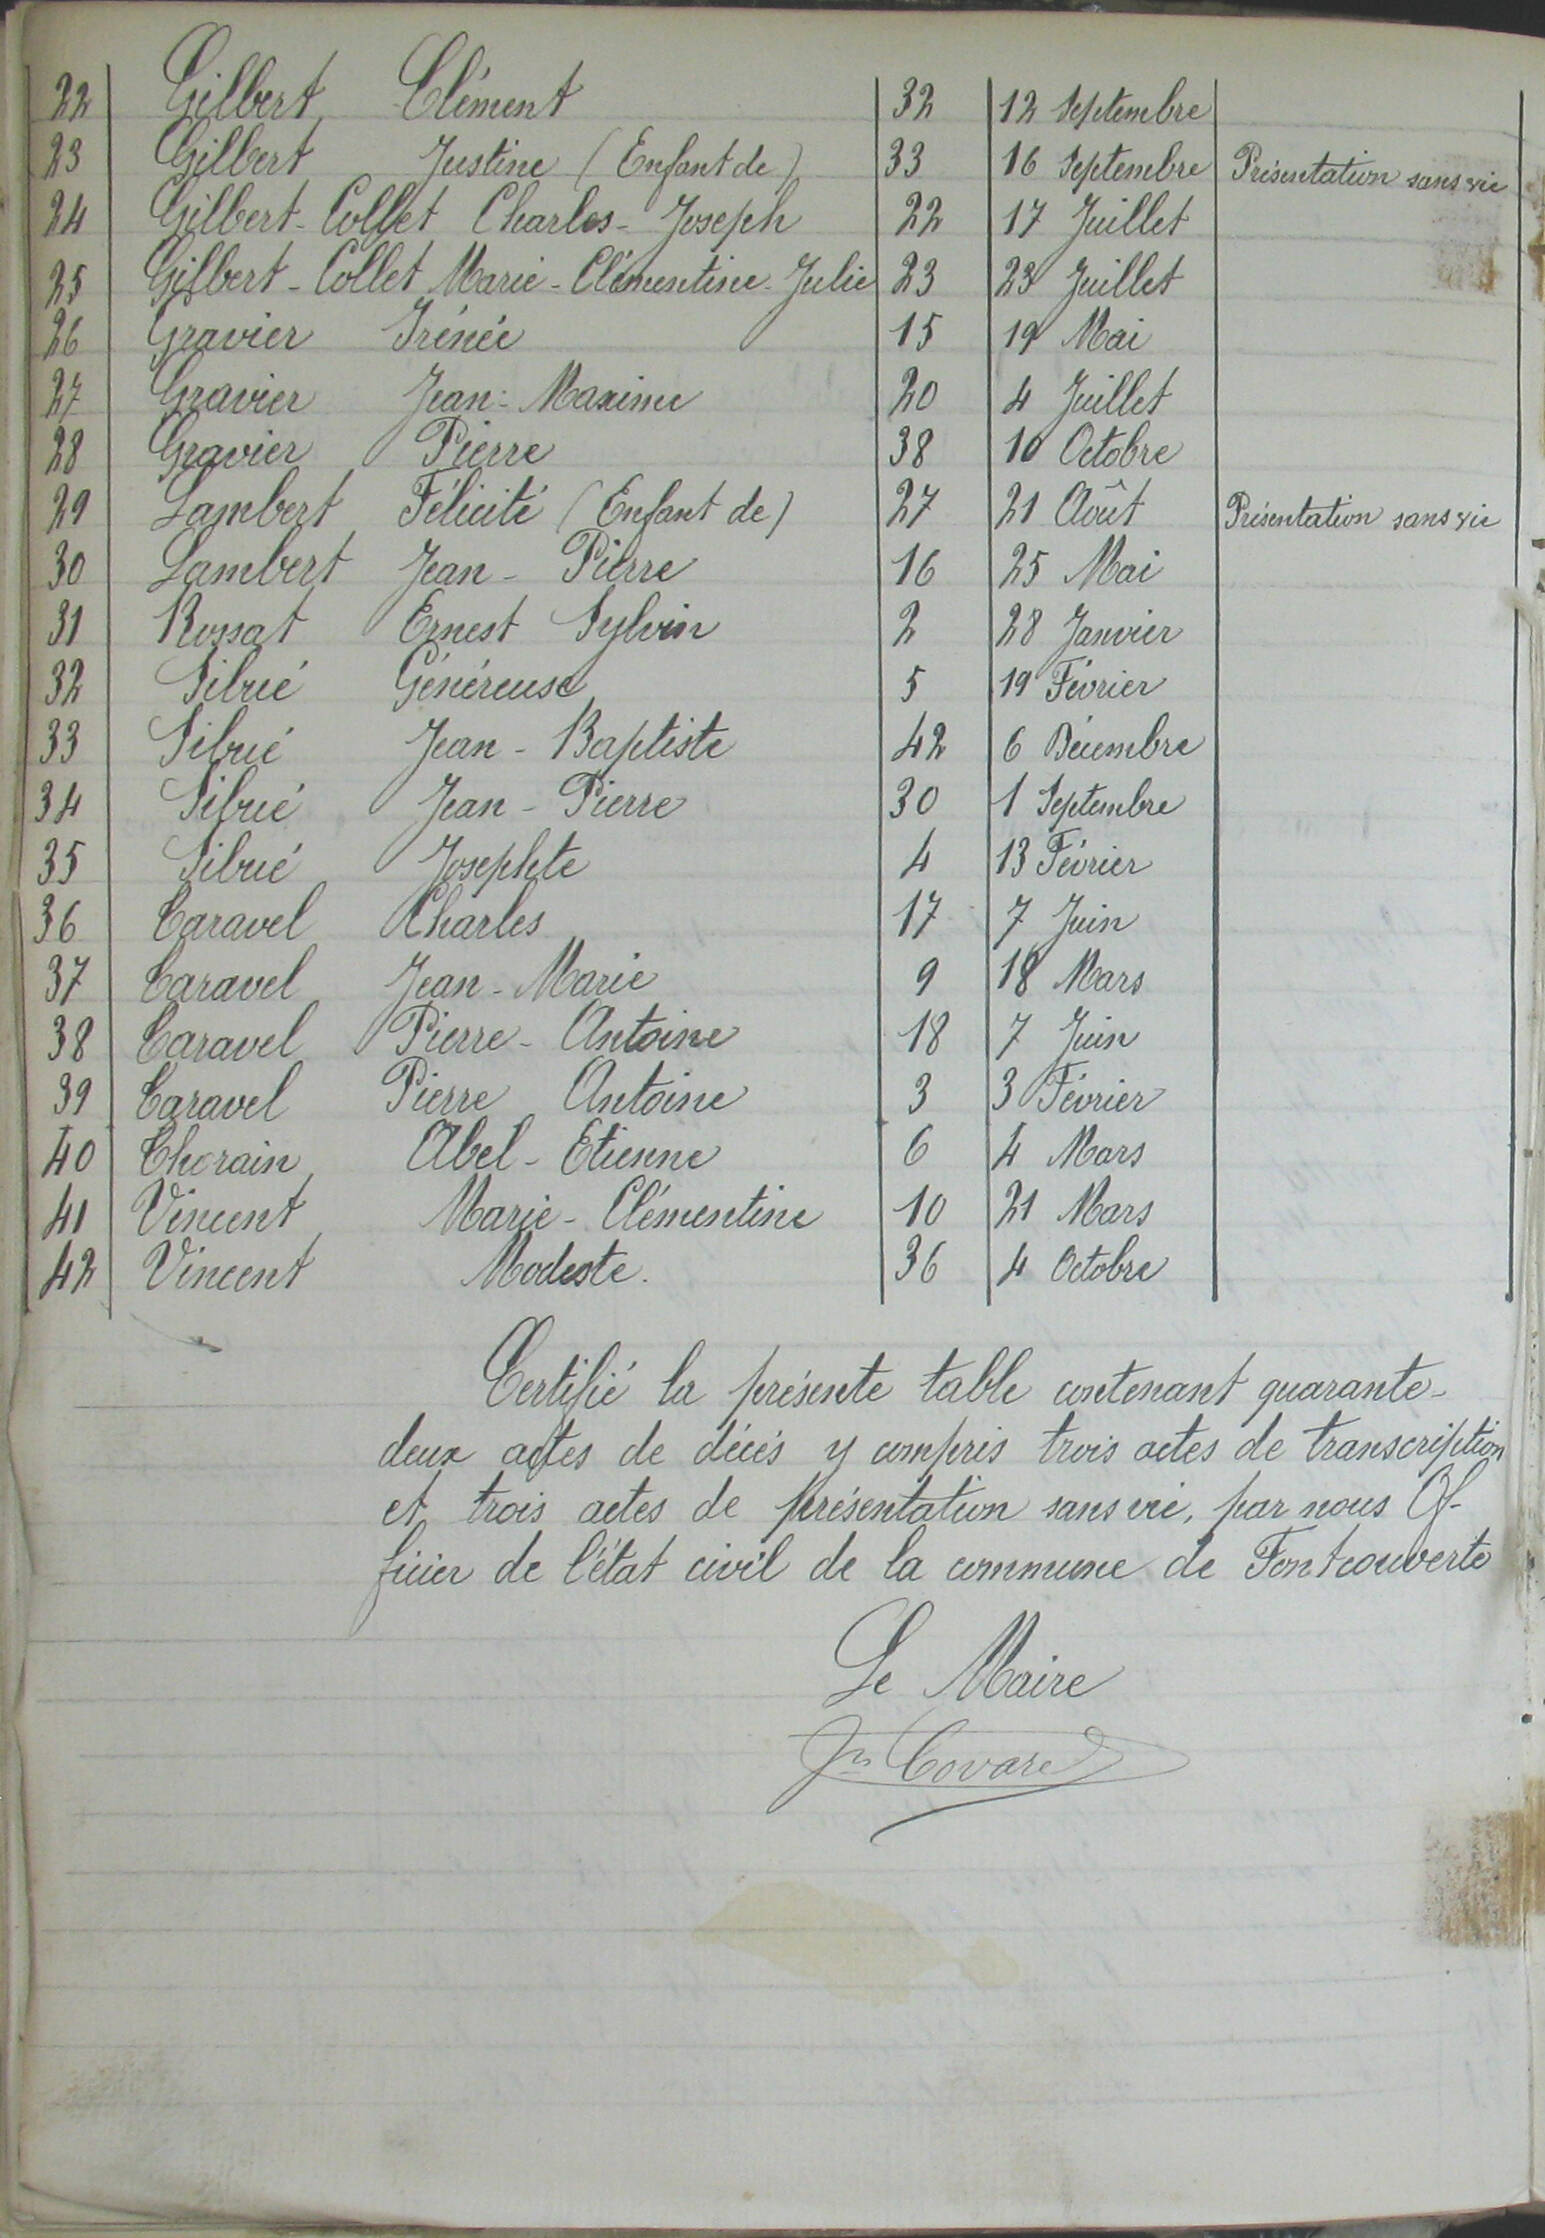 22 Gilbert Clément 32 12 Septembre
23 Gilbert Justine (Enfant de) 33 16 Septembre Présentation sans vie
24 Gilbert-Collet Charles-Joseph 22 17 Juillet
25 Gilbert-Collet Marie-Clémentine-Julie 23 23 Juillet
26 Gravier Irénée 15 19 Mai
27 Gravier Jean-Maxime 20 4 Juillet
28 Gravier Pierre 38 10 Octobre
29 Lambert Félicité (Enfant de) 27 21 Août Présentation sans vie
30 Lambert Jean-Pierre 16 25 Mai
31 Rossat Ernest Sylvin 2 28 Janvier
32 Sibué Généreuse 5 19 Février
33 Sibué Jean-Baptiste 42 6 Décembre
34 Sibué Jean-Pierre 30 1 Septembre
35 Sibué Josephte 4 13 Février
36 Taravel Charles 17 7 Juin
37 Taravel Jean-Marie 9 18 Mars
38 Taravel Pierre-Antoine 18 7 Juin
39 Taravel Pierre Antoine 3 3 Février
40 Thorain Abel-Etienne 6 4 Mars
41 Vincent Marie-Clémentine 10 21 Mars
42 Vincent Modeste. 36 4 Octobre
Certifié la présente table contenant quarante-
deux actes de décés y compris trois actes de transcription
et trois actes de présentation sans vie, par nous Of-
ficier de l'état civil de la commune de Fontcouverte
Le Maire
Jn Covarel